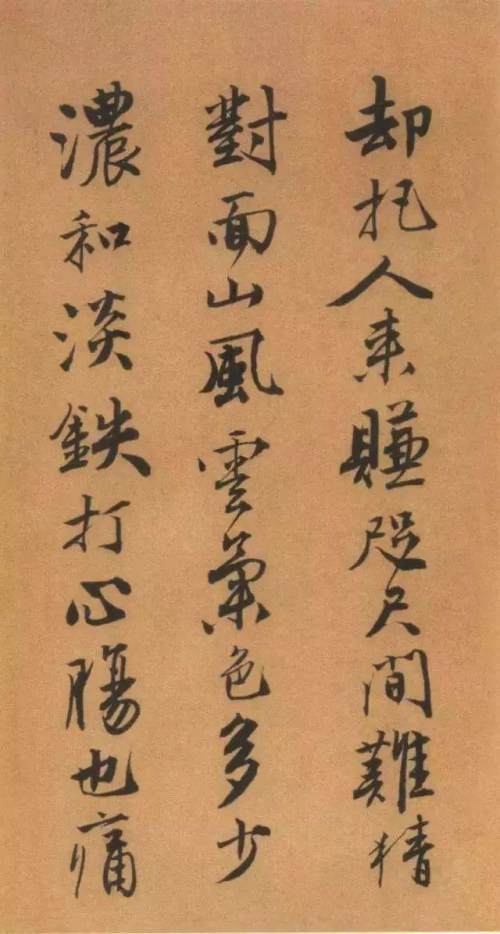 却托人来賺咫尺間難猜
對面山風雲氣色多少
濃和淡鉄打心腸也痛